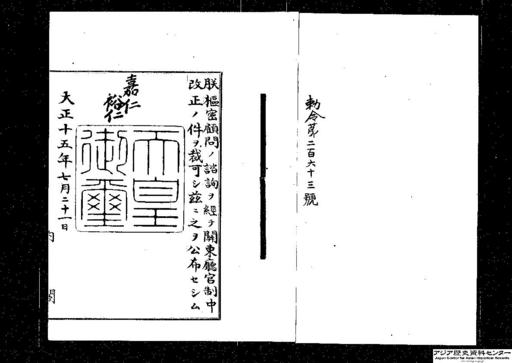 勅令第二百六十三號
朕樞密顧問ノ諮詢ヲ經テ關東廳官制中
改正ノ件ヲ裁可シ茲ニ之ヲ公布セシム
嘉仁
裕仁
天皇
御璽
大正十五年七月二十一日
内閣
アジア歴史資料センター
Japan Center for Asian Historical Records